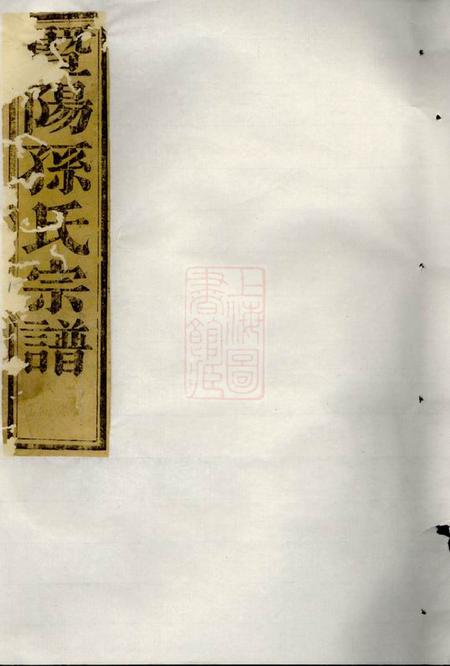 暨陽孫氏宗譜
上海圖
書館藏